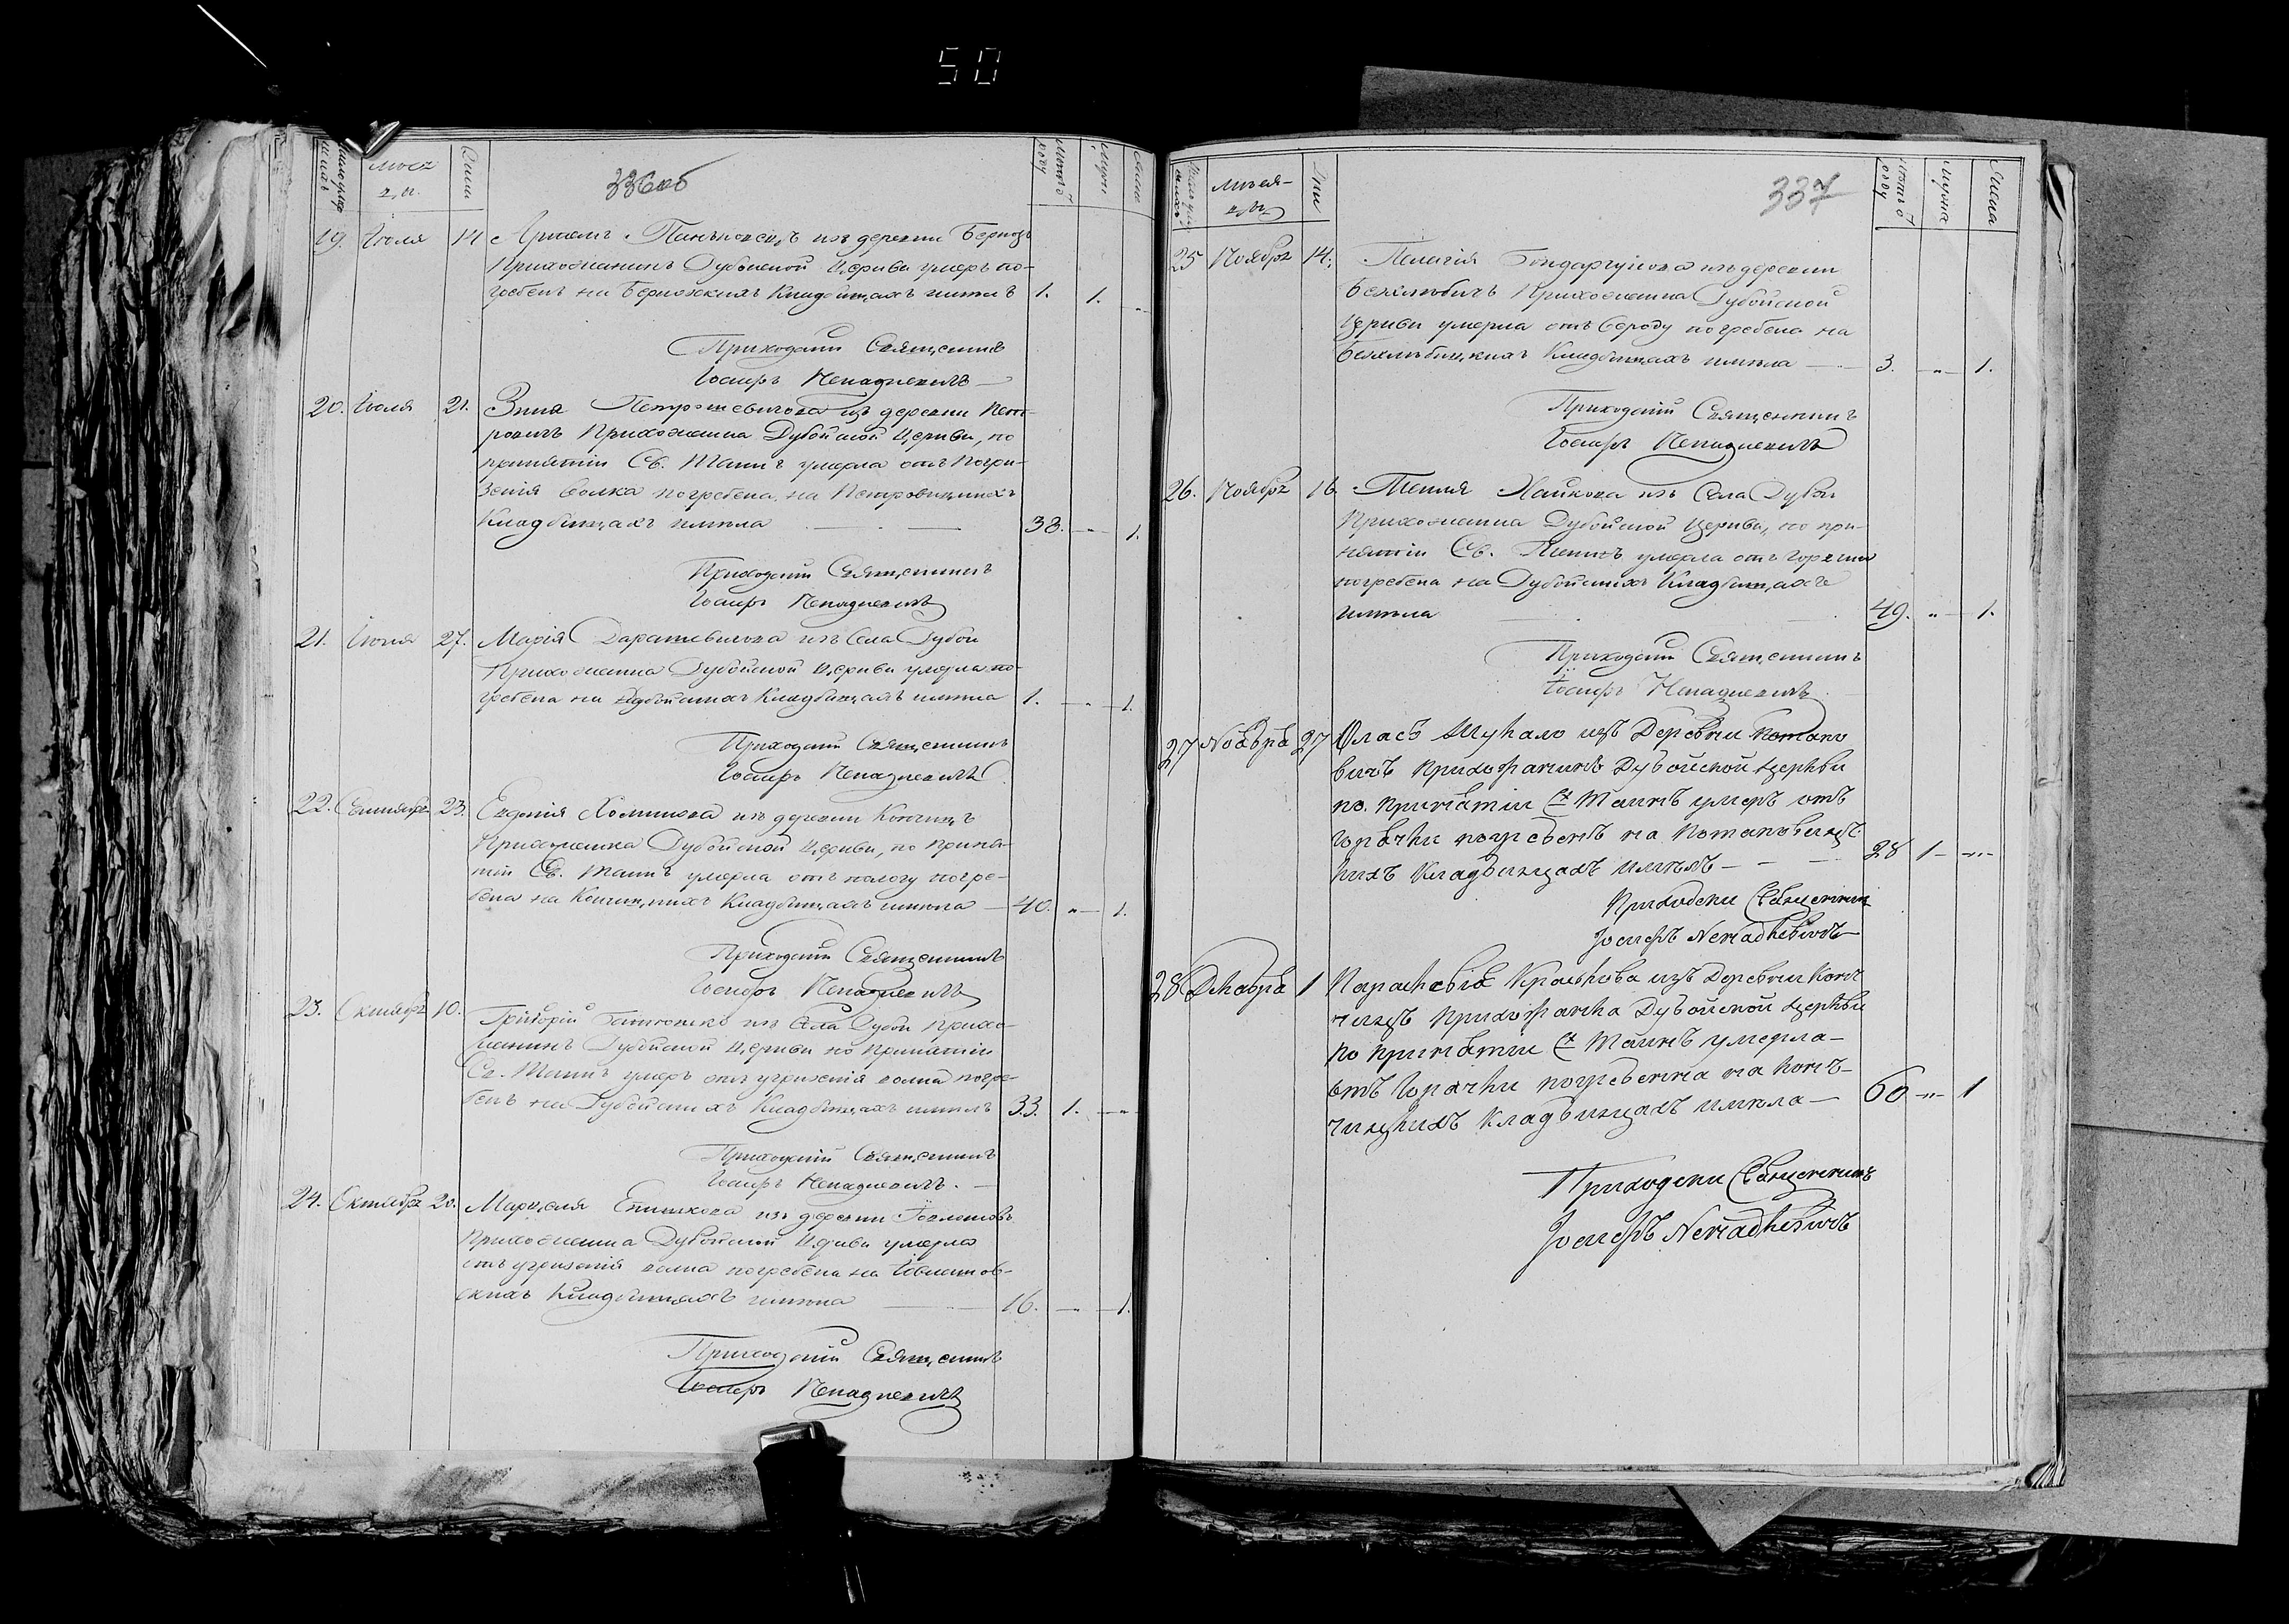 50
336об
мѣся
ца
дни
19. Іюля 14 Аѳтелъ Паньковскъ изъ деревни Берноз
Прихожанинъ Дубойской Церкви умеръ по-
гребенъ на Кладбищахъ имѣлъ 1. 1. „
Приходскій Священникъ
Іосифъ Ненадкевичъ
20. Іюля 21. Петрошевичова изъ деревни Пет-
ровичъ Прихожанка Дубойской Церкви, по
принятіи Св. Таинъ умерла отъ Погри-
зенія волка погребена на Петровицкихъ
Кладбищахъ имѣла 38. „ 1.
Приходскій Священникъ
Іосифъ Ненадкевичъ
21. Іюля 27. Марія Дарашевичова изъ Села Дубои
Прихожанка Дубойской Церкви умерла по-
гребена на Дубойскихъ Кладбищахъ имѣла 1. „ 1.
Приходскій Священникъ
Іосифъ Ненадкевичъ
22. Сентября 23. Евдокія Хомичова изъ деревни Кончицъ
Прихожанка Дубойской Церкви, по приня-
тіи Св. Таинъ умерла отъ пологу погре-
бена на Кончицкихъ Кладбищахъ имѣла 40. „ 1.
Приходскій Священникъ
Іосифъ Ненадкевичъ
23. Октября 10. Григорій изъ Села Дубои Прихо-
жанинъ Дубойской Церкви по принятіи
Св. Таинъ умеръ отъ угризенія волка погре-
бенъ на Дубойскихъ Кладбищахъ имѣлъ 33. 1. „
Приходскій Священникъ
Іосифъ Ненадкевичъ.
24. Октября 20. Марцеля изъ деревни
Прихожанка Дубойской Церкви умерла
отъ угризенія волка погребена на
скихъ Кладбищахъ имѣла 16. „ 1.
Приходскій Священникъ
Іосифъ Ненадкевичъ
337
мѣся-
цы
дни
25 Ноября 14. Пелагія Бондарчукова изъ деревни
Прихожанка Дубойской
Церкви умерла отъ вероду погребена на
Кладбищахъ имѣла 3. „ 1.
Приходскій Священникъ
Іосифъ Ненадкевичъ
26. Ноября 16. Текля Хайкова изъ Села Дубои
Прихожанка Дубойской Церкви, по при-
нятіи Св. Таинъ умерла отъ горячки
погребена на Дубойскихъ Кладбищахъ
имѣла 49. „ 1.
Приходскій Священникъ
Іосифъ Ненадкевичъ
27 Ноября 27 Власъ Шукало изъ Деревни Потапо
вичъ Прихожанинъ Дубойской Церкви
по принятіи С. Таинъ умеръ отъ
горячки погребенъ на Потаповицс
кихъ Кладбищахъ имѣлъ 28 1 „
Приходски Священникъ
Іосифъ Ненадкевичъ
28 Декабря 1 Параскевія Краськова изъ Деревни Кон
чицъ Прихожанка Дубойской Церкви
по принятіи С. Таинъ умерла
отъ горячки погребенна на Кон
чицкихъ Кладбищахъ имѣла 60 „ 1
Приходски Священникъ
Іосифъ Ненадкевичъ